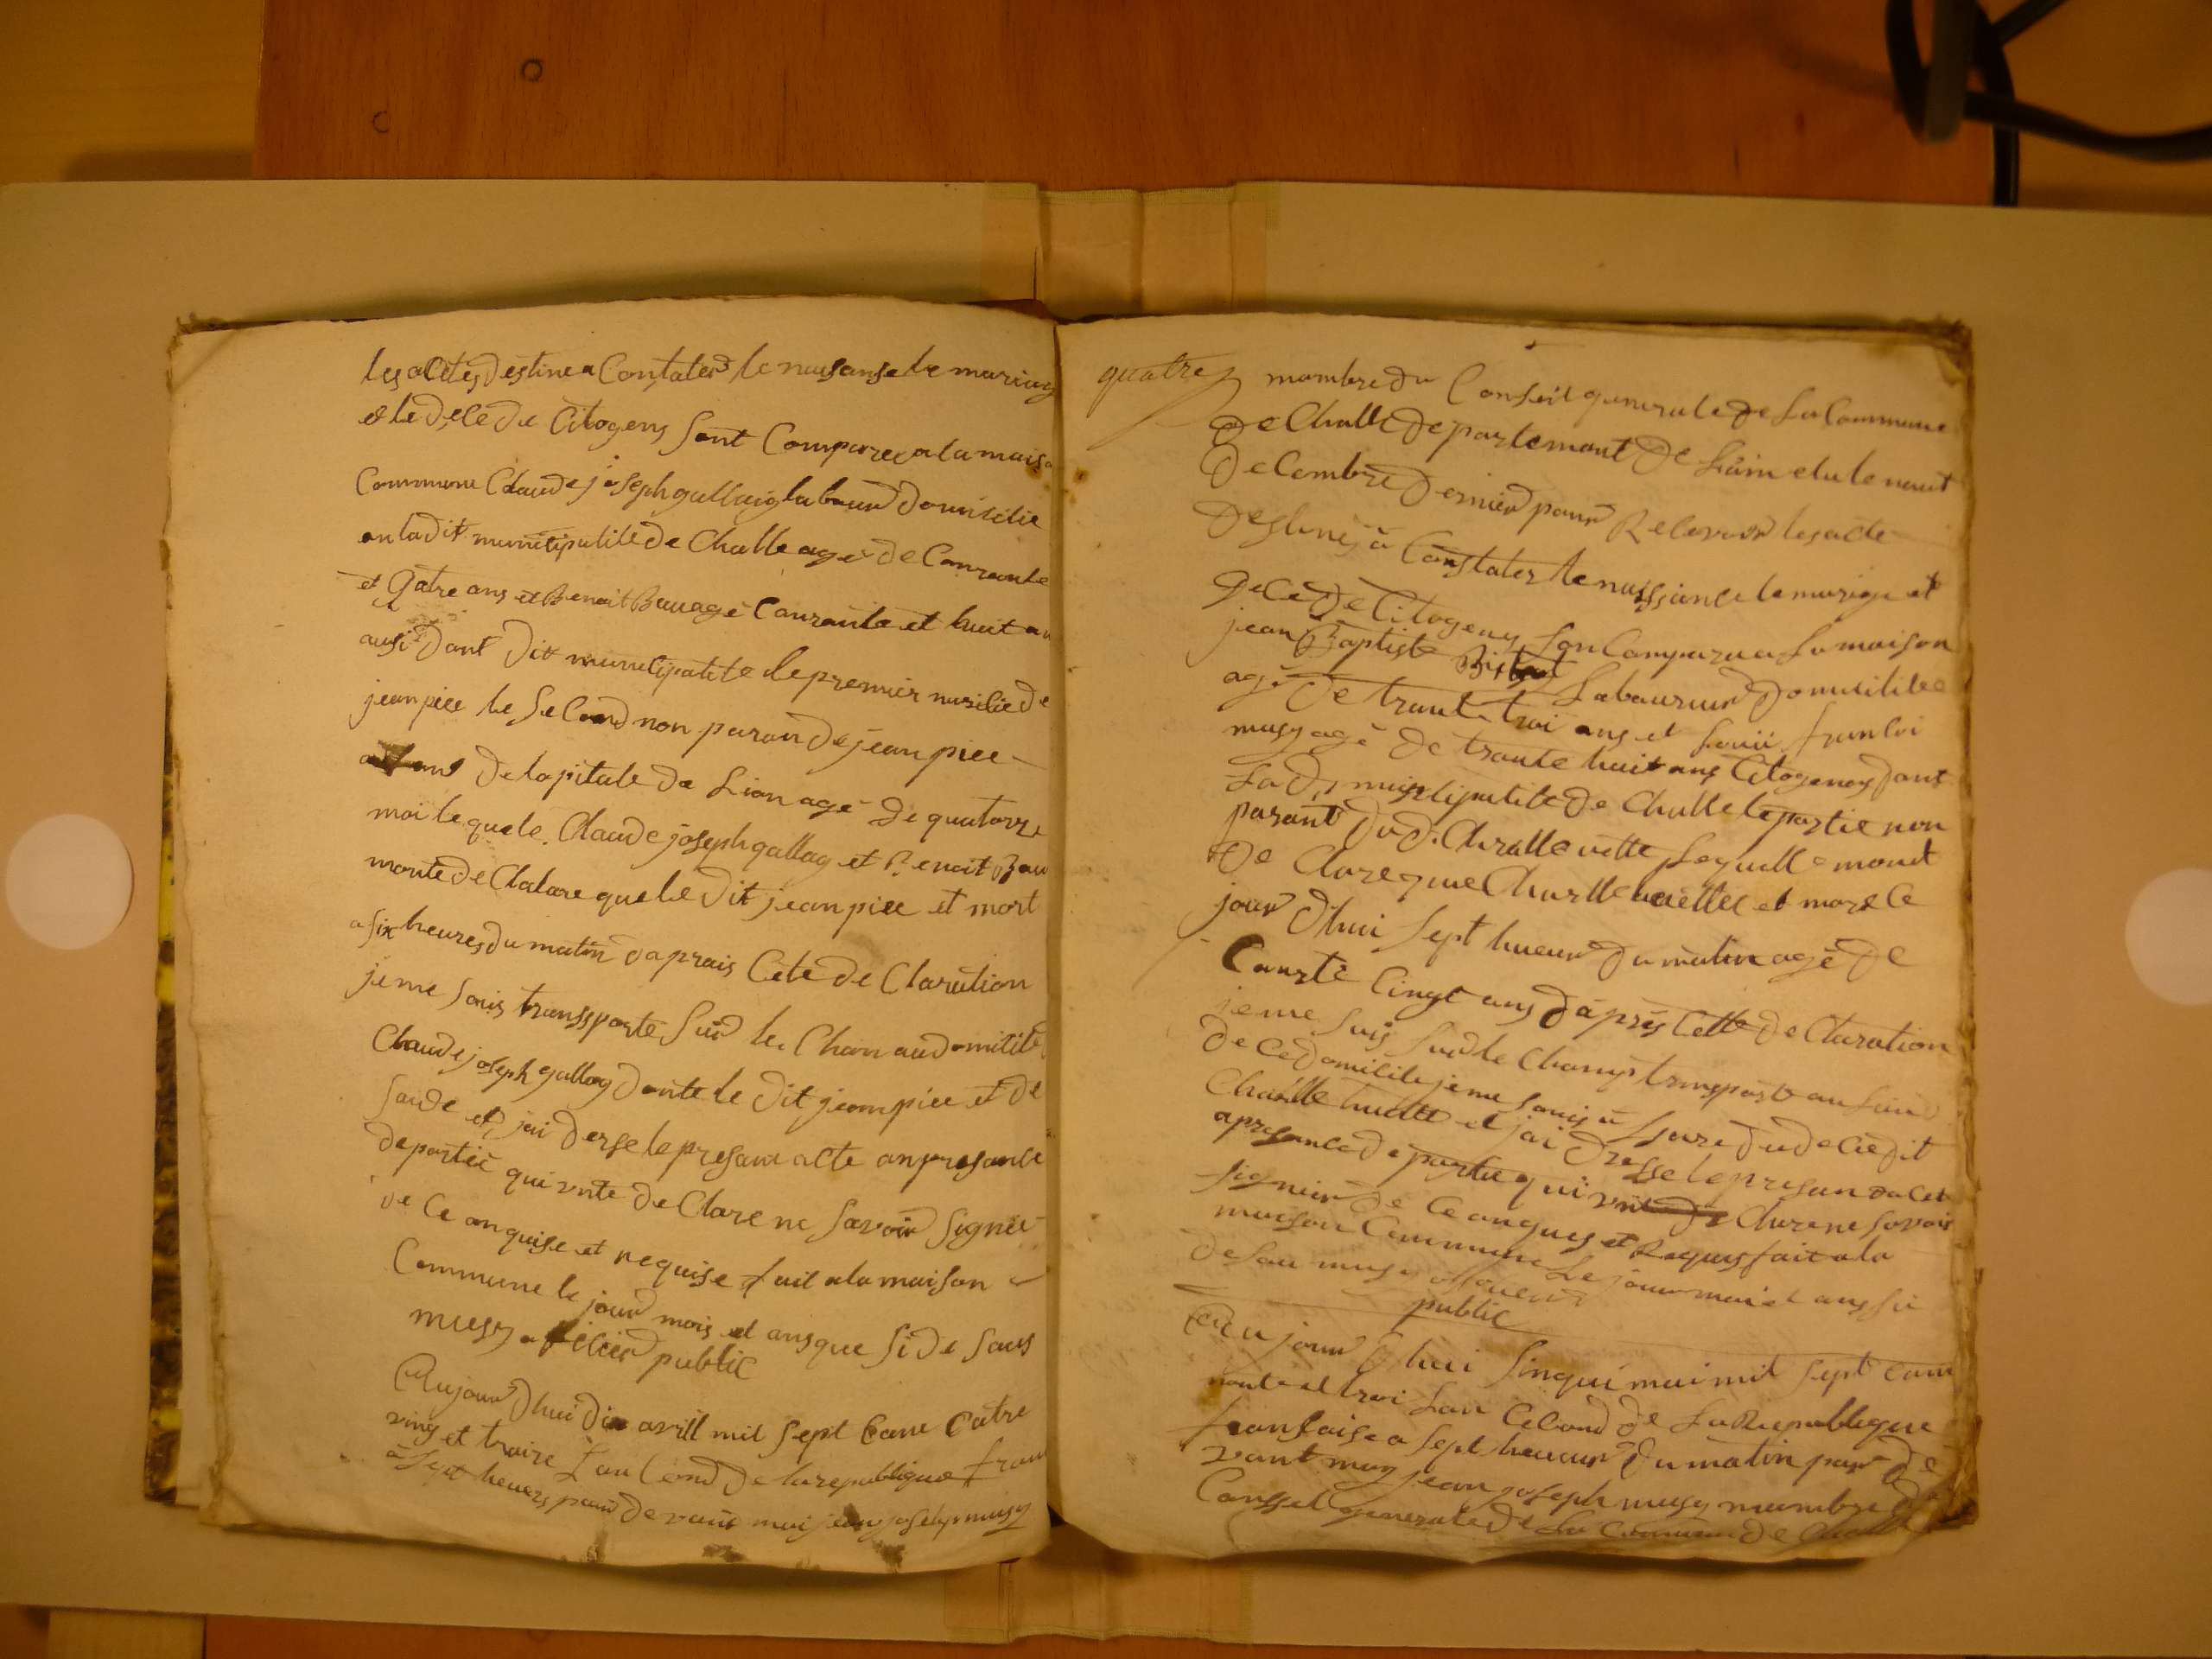 les actes destine a Constater le naisanse le mariag
et le decé de Citogens sont Comparee a la maiso
Commune Claude joseph gallaig labour domicilie
en ladit municipalite de Challe agé de Carante
et Qatre ans et Benoit Bau agé Carante et huit an
ausi dant dit municipalite le premier
jean piee le Second non paran de jean piee
de lapitale de Lion agé de quatorze
moi le quele Claude joseph gallag et Benoit Bau
monte de Clalare que le dit jean piee et mort
a six heures du matin daprais Cete de Claration
je me suis transsporte sur le Chan au domicile
Claude joseph gallag donte le dit jean piee et de
sede et jai derse le presant acte an presance
de partie qui vnte de Clare ne savoir signée
de Ce anquise et requise fait a la maison
Commune le jour mois et ans que si de saus
musy oficier public
Aujour dhui dix avrill mil sept Cane Catre
ving et traize Lan Cond de la republique fran
à sept heuers par devant moi jean joseph musy
quatre mambre du Conseil generale de La Commune
de Challe departemant de Lain elu le neuf
decembre dernier pour Recevoir les acte
destiné à Constater le naissance le marige et
decé de Citogeny son Comparu a La maison
jean Baptiste Labaurieur domicililee
agé de trante troi ans et Louis fransoi
musy agé de trante huit ans Citogenoy dans
La d. municipalite de Challe le partie non
parant du d. Challe uette lequelle mont
de Clare que Charlle uette et mort Ce
jour dhui sept hueur du matin agé de
Carnte Cinqt ans daprés Cette de Claration
je me suis sur le Champ transporte au Lieu
de Ce domicile je me suis a sure du decie dit
Challe huette et jai dresse le presan acte
a presance de partie qui vnt de Clare ne savoir
signeir de Ce anques et Requis fait a la
maison Commune Le jour moi et ans si
de sau musy officier
public
Aujour dhui sinqui mai mil sept cam
nonte et troi Lan Cecond de La Republique
fransaise a sept heueur du matin par de
vant moy jean joseph musy mambre du
Conssel generale de La Commun de Challe